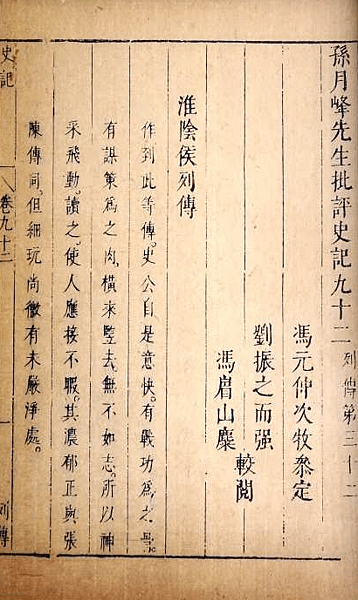 孫月峰先生批評史記九十二 列傳第三十二
馮元仲次牧參定
劉振之而强
馮眉山麋
較閱
淮陰侯列傳
作到此等傳。史公自是意快。有戰功爲之骨。
有謀策爲之肉。橫來豎去。無不如志。所以神
采飛動。讀之。使人應接不暇。其濃郁正與張
陳傳同。但細玩尚微有未嚴淨處。
史記
卷九十二
列傳